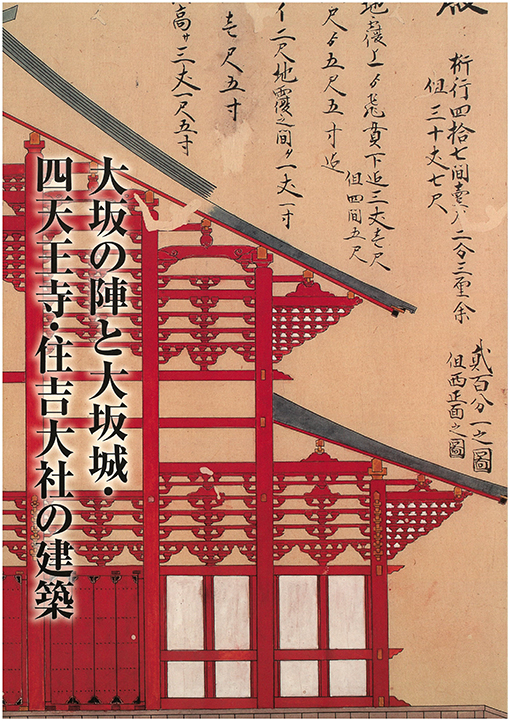 大坂の陣と大坂城・
四天王寺・住吉大社の建築
桁行四拾七間壹 二分三厘余
但三十丈七尺
貳百分一之圖
但西正面之圖
地覆上ゟ飛貫下迄三丈壱尺
但四間五尺
尺ゟ五尺五寸迄
二尺地覆之間 一丈一寸
壱尺五寸
高サ三丈一尺五寸